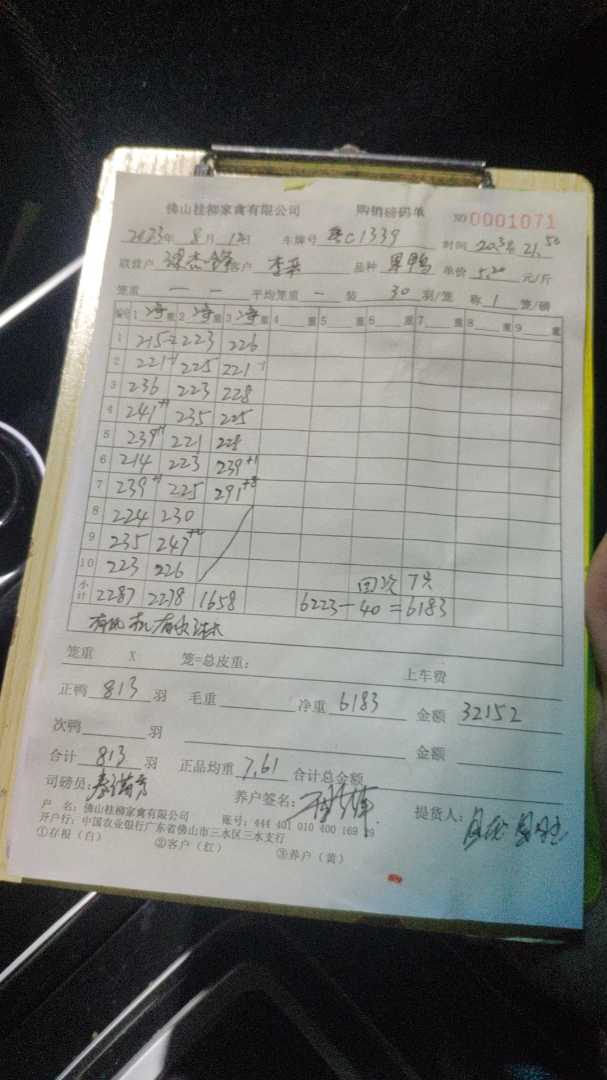 佛山桂柳家禽有限公司 购销磅码单 №0001071
2023年 8月 1日 车牌号 C1339 时间 21:50
联营户 客户 李 品种 鸭 单价 5.20 元/斤
笼重 — — 平均笼重 — 装 30 羽/笼 称 1 笼/磅
编号 1 净重 2 净重 3 净重 4 重 5 重 6 重 7 重 8 重 9 重
1 215-2 223 226
2 221+1 225 221-1
3 236 223 228
4 241+1 235 225
5 239+1 221 228
6 214 223 239+1
7 239+1 225 291+3
8 224 230
9 235 247
10 223 226
回次 7只
小计 2287 2278 1658 6223-40=6183
笼重 X 笼=总皮重: 上车费
正鸭 813 羽 毛重 净重 6183 金额 32152
次鸭 羽 金额
合计 813 羽 正品均重 7.61 合计总金额
司磅员: 养户签名: 提货人:
户 名: 佛山桂柳家禽有限公司 账号: 444 401 010 400 169 29
开户行: 中国农业银行广东省佛山市三水区三水支行
①存根（白） ②客户（红） ③养户（黄）